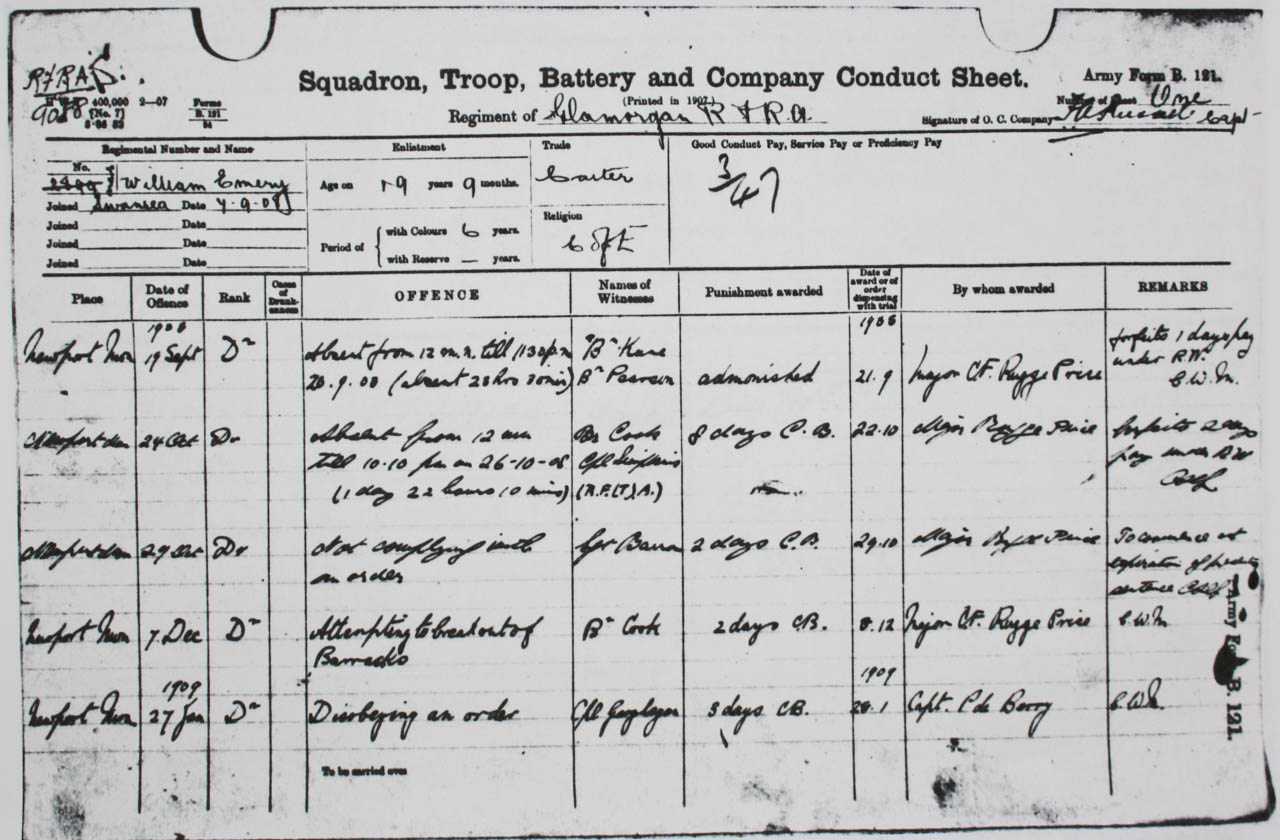 R.F.R.A.
Squadron, Troop, Battery and Company Conduct Sheet.
Army Form B. 121.
400,000 2—07
[No. 7]
Forms
B. 121
(Printed in 1907.)
Number of Sheet One
Regiment of Glamorgan R F R.A.
Signature of O. C. Company Capt
Regimental Number and Name
Enlistment
Trade
Good Conduct Pay, Service Pay or Proficiency Pay
No.
William Emery
Age on 19 years 9 months.
Carter
3/47
Joined Swansea Date 7-9-08
Joined Date
Religion
Joined Date
Period of
with Colours 6 years.
C of E
Joined Date
with Reserve — years.
Place
Date of Offence
Rank
Cases of Drunkenness
OFFENCE
Names of Witnesses
Punishment awarded
Date of award or of order dispensing with trial
By whom awarded
REMARKS
1908
1908
Newport Mon 19 Sept Dr Absent from 12 m.n. till 11.30 p.m Br Kane forfeits 1 days pay
20.9.08 (absent 23 hrs 30 min) Br Pearson admonished 21.9 Major C.F. Rugge Price under R.W.
C.W.M.
Newport Mon 24 Oct Dr Absent from 12 mn Br Cook 8 days C.B. 22.10 Major Rugge Price forfeits 2 days
till 10.10 pm on 26-10-08 Cpl Simpkins pay under RW
(1 day 22 hours 10 mins) (R.F.(T)A.)
Newport Mon 29 Oct Dr Not complying with Gr Barron 2 days C.B. 29.10 Major Rugge Price To commence at
an order expiration of
sentence
Newport Mon 7 Dec Dr Attempting to break out of Br Cook 2 days C.B. 8.12 Major C.F. Rugge Price C.W.M
Barracks
1909
1909
Newport Mon 27 Jan Dr Disobeying an order Cpl 3 days C.B. 28.1 Capt. P de Berry C.W.M.
To be carried over
Army Form B. 121.